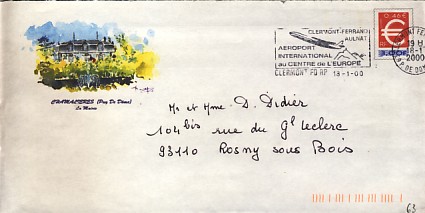 CLERMONT-FERRAND
AULNAT
AEROPORT
INTERNATIONAL
au CENTRE de L'EUROPE
CLERMONT FD RP 18-1-00
0,46 €
3,00 F
19 H
18-1
2000
CHAMALIERES (Puy De Dôme)
La Mairie
Mr et Mme D. Didier
104bis rue du Gl Leclerc
93110 Rosny sous Bois
63